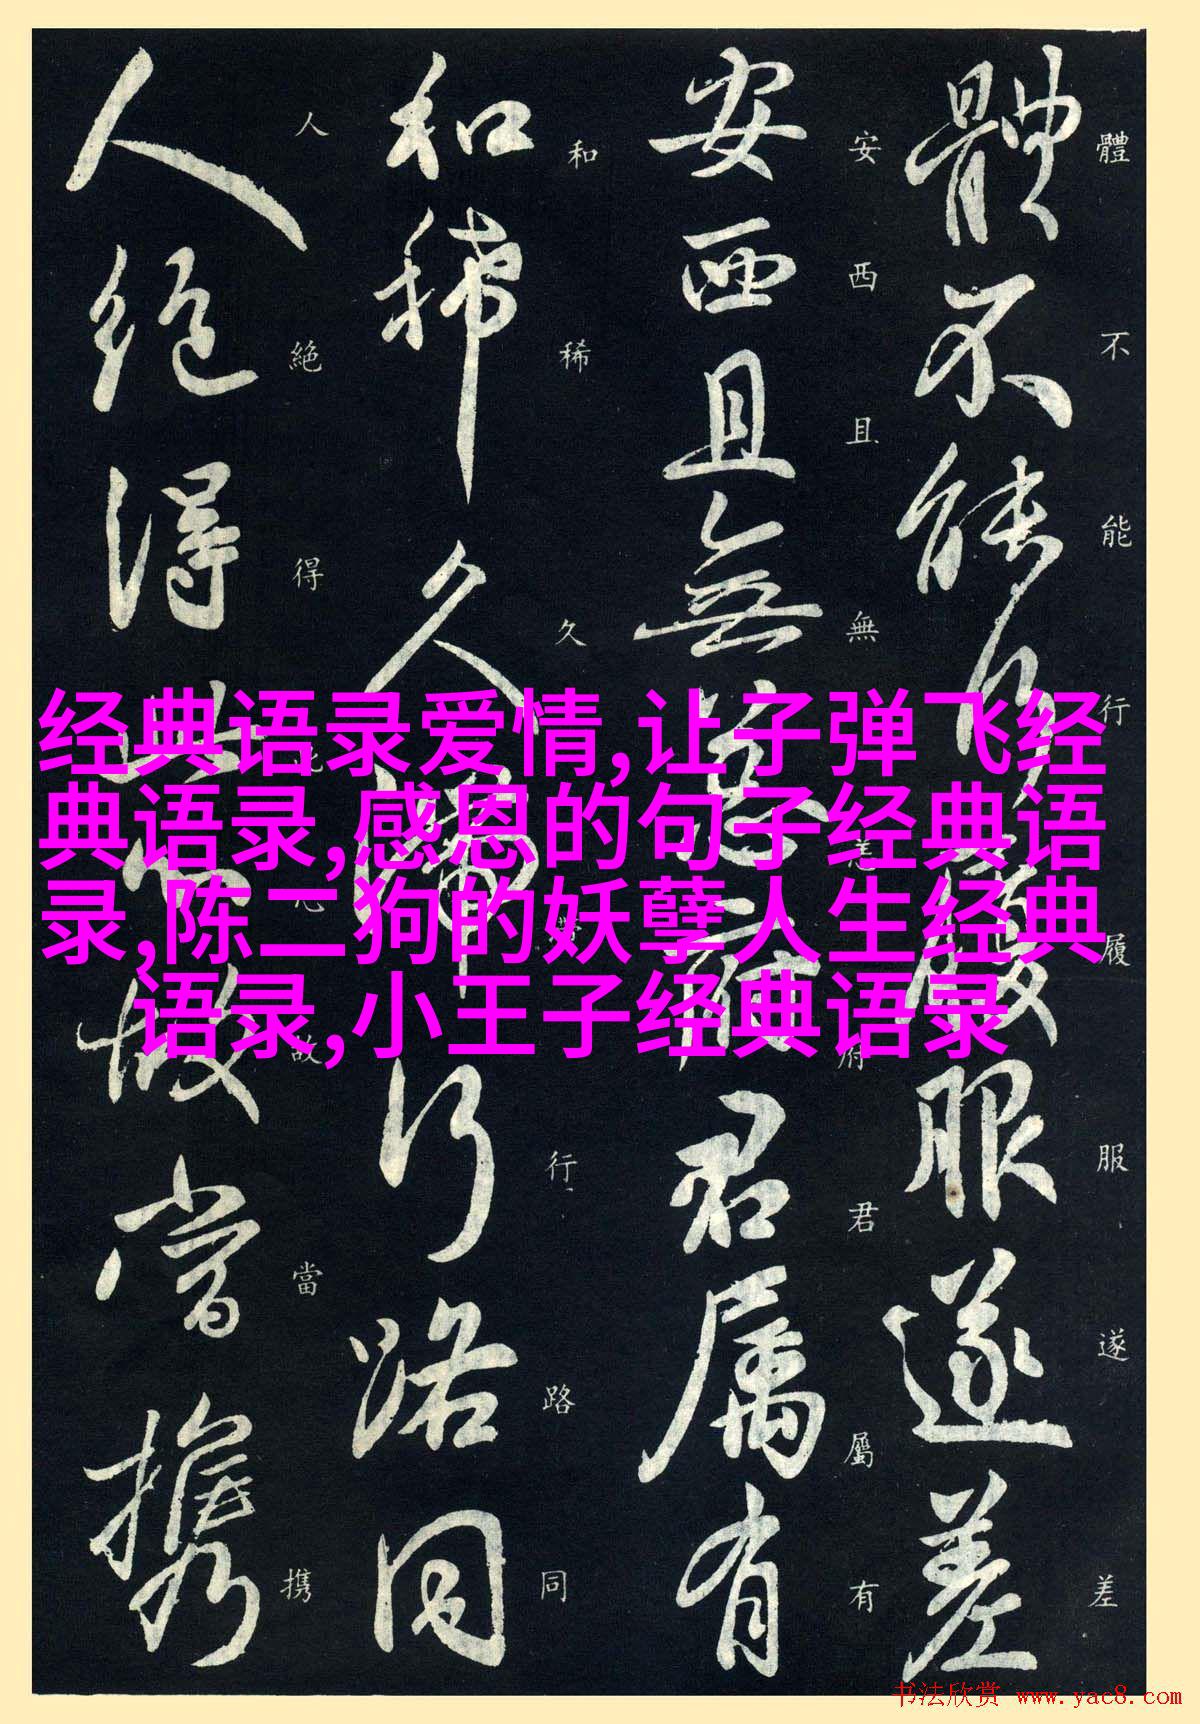 體不能行履服遂差
體不能行履服遂差
安西且無恙府君屬有
安西且無恙府君屬有
和稀久行路同
和稀久行路同
人絕得此故當携
人絕得此故當携
经典语录爱情,让子弹飞经
典语录,感恩的句子经典语
录,陈二狗的妖孽人生经典
语录,小王子经典语录
书法欣赏 www.yac8.com